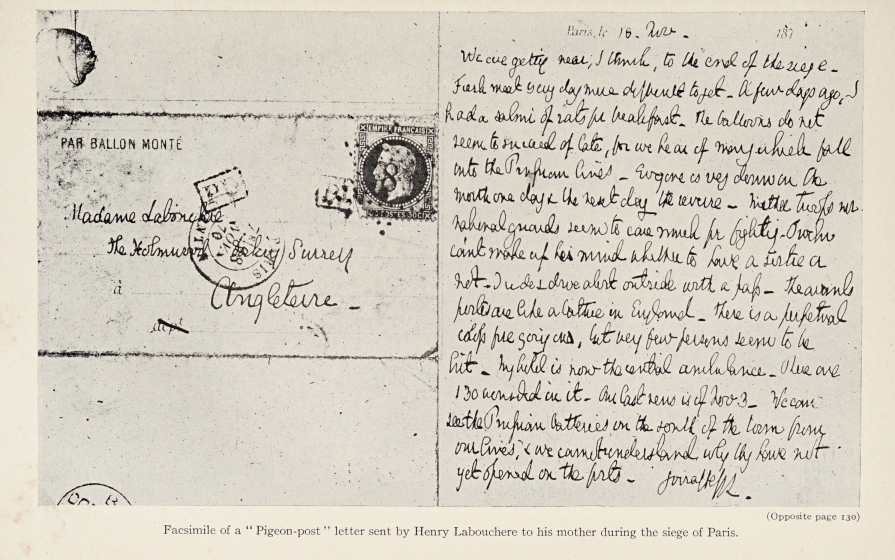 PAR BALLON MONTÉ
EMPIRE FRANÇAIS
Madame Labouchere
The Holmwood Surrey
à
Angleterre
dépt
PARIS
Paris, le 18. Nov. 187
We are getting near, I think, to the end of the siege –
Fresh meat every day more difficult to get – A few days ago, I
had a salmi of rats for breakfast. The balloons do not
seem to succeed of late, for we hear of many which fall
into the Prussian lines – Everyone is very down in the
mouth one day & the next day the reverse – Neither troops nor
national guards seem to care much for fighting – Trochu
can't make up his mind whether to have a sortie or
not – I ride & drive about outside with a pass – The
are like a in England – There is a perpetual
going on, but very few persons seem to be
hit – My hotel is now the central ambulance – There are
130 wounded in it – Our last news is of Nov 3 – We can
see the Prussian batteries on the south of the town from
our lines, & we cannot understand why they have not
yet opened on the forts –
(Opposite page 130)
Facsimile of a "Pigeon-post" letter sent by Henry Labouchere to his mother during the siege of Paris.